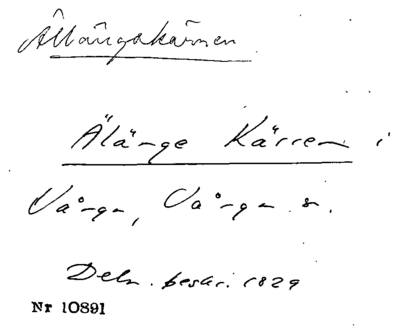 Ållångakärnen
Älänge Kärren i
Vånga, Vånga s.
Deln. beskr. 1829
Nr 10891